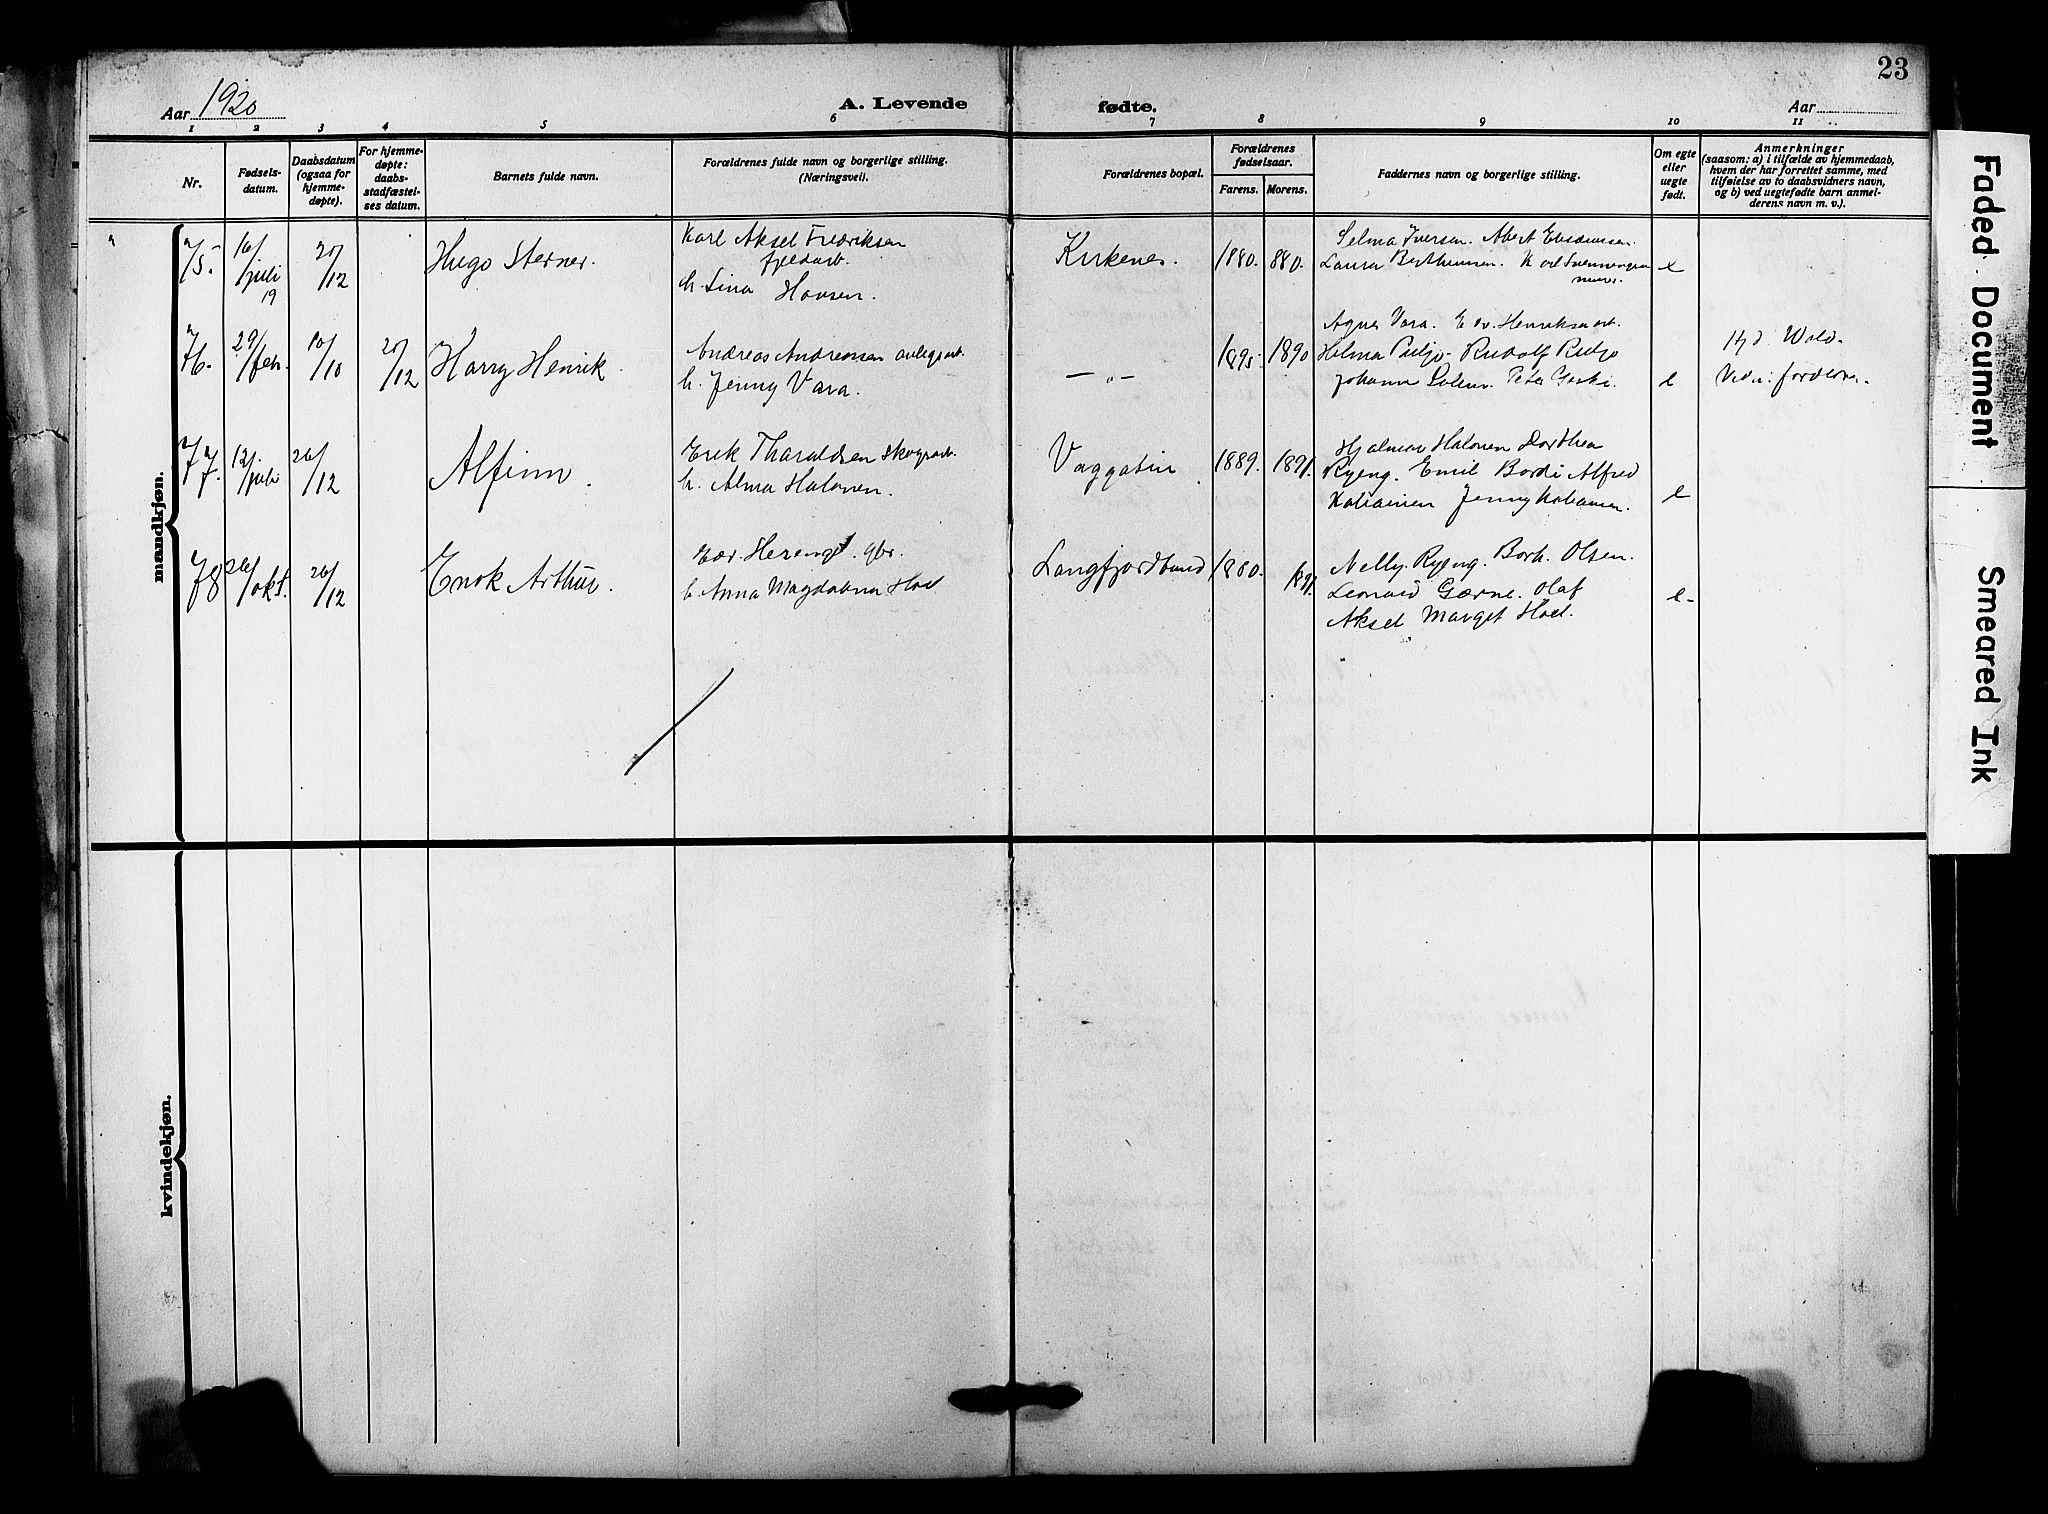 23
Aar 1920
A. Levende fødte.
Aar
1 2 3 4 5 6 7 8 9 10 11
Nr.
Fødsels-
datum.
Daabsdatum
(ogsaa for
hjemme-
døpte).
For hjemme-
døpte:
daabs-
stadfæstel-
ses datum.
Barnets fulde navn.
Forældrenes fulde navn og borgerlige stilling.
(Næringsvei).
Forældrenes bopæl.
Forældrenes
fødselsaar.
Farens. Morens.
Faddernes navn og borgerlige stilling.
Om egte
eller
uegte
født.
Anmerkninger
(saasom: a) i tilfælde av hjemmedaab,
hvem der har forrettet samme, med
tilføielse av to daabsvidners navn,
og b) ved uegtefødte barn anmel-
derens navn m. v.).
mandkjøn.
75.
16/juli
19
20/12
Hugo Sterner.
Karl Aksel Fredriksen
fjeldarb.
h. Lina Hansen.
Kirkenes.
1880. 880.
Selma Iversen. Abert
Laura Bertheusen. K
e
76.
29/febr.
10/10
20/12
Harry Henrik.
Andreas Andreassen anlegsarb.
h. Jenny Vara.
—„—
1895. 1890
Agnes Vara. Edv. Henriksen arb.
Helma Puljo. Rudolf Puljo
Johanna Peter
e
Hj.d. Wold.
77.
12./juli
26/12
Alfinn.
Erik Tharaldsen skogsarb.
h. Alma Halonen.
Vaggatin
1889. 1891.
Hjalmar Halonen Dorthea
Ryeng. Emil Bordi Alfred
Jenny
e
78
26/okt.
26/12
Enok Arthur.
gbr.
h. Anna Magdalena Hoel
Langfjordbund
1880. 1891.
Nelly Ryeng. Borh. Olsen.
Leonard Olaf
Aksel Marget Hoel.
e
kvindekjøn.
Faded Document
Smeared Ink